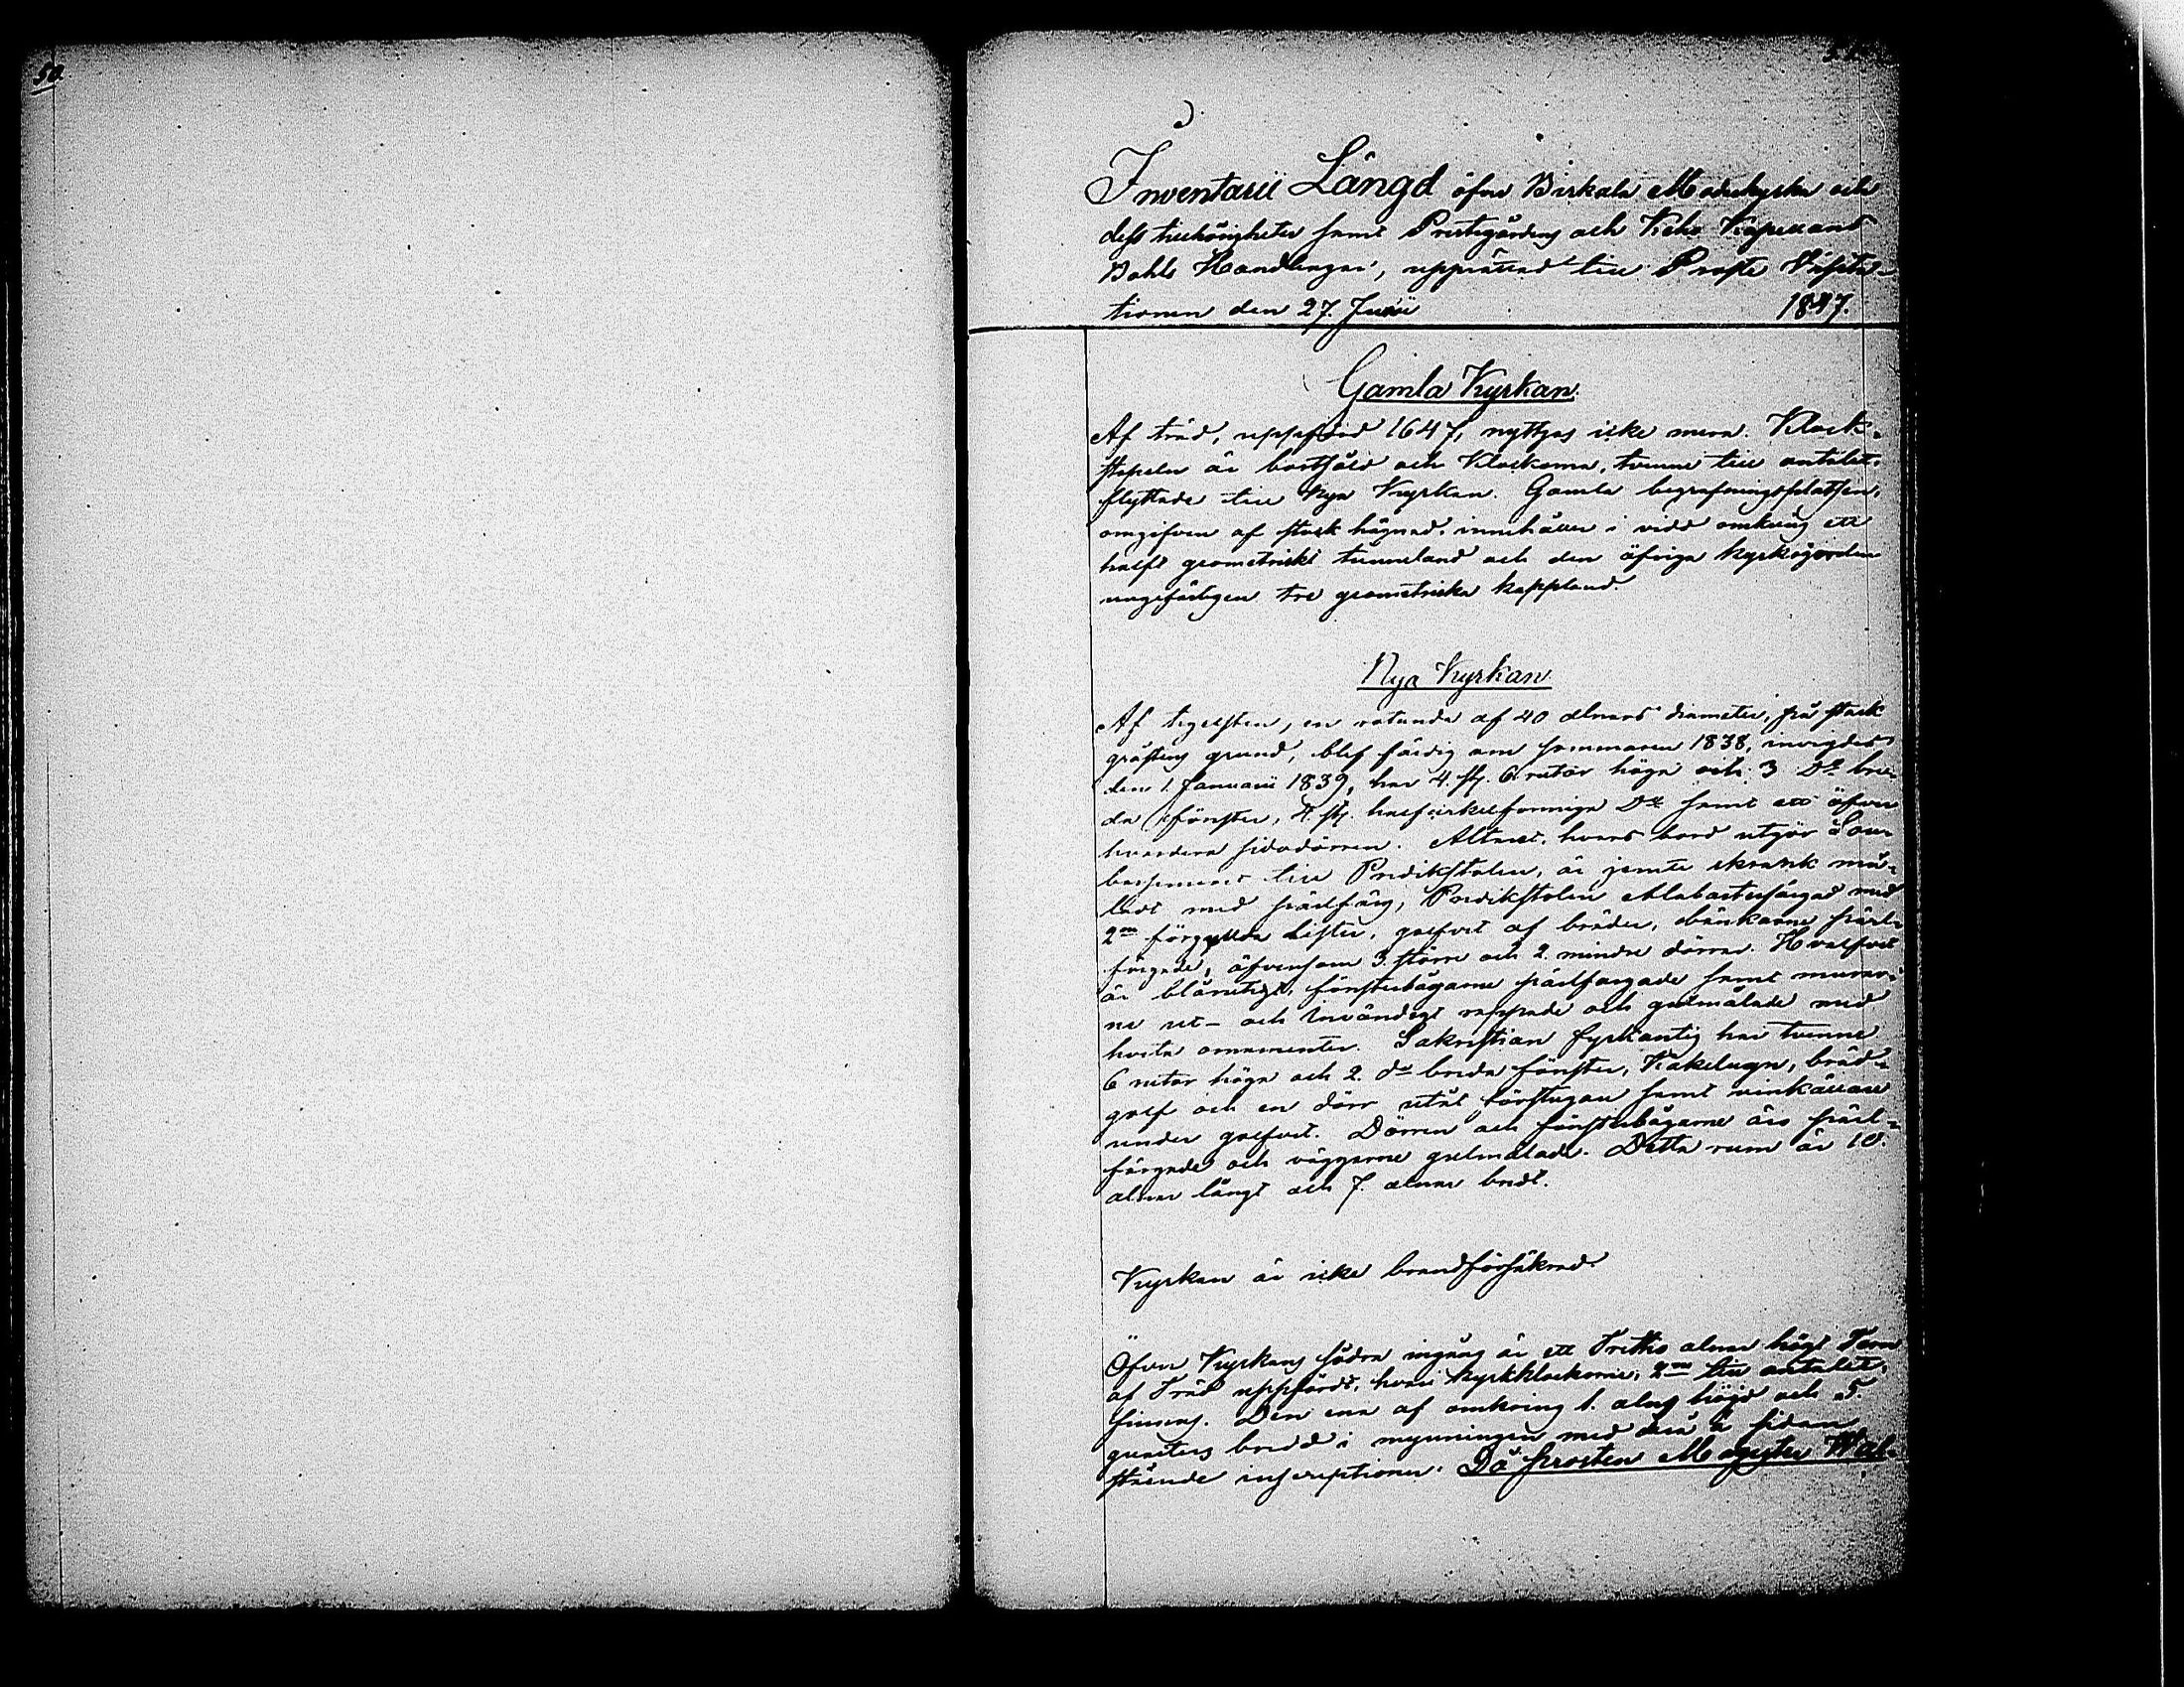 50.
51.
Inventarii Längd öfver Birkala Moderkyrka och
dess tillhörigheter samt Prestgårdens och Keho Kapellans
Bohls Handlingar, upprättad till Prosts Visita-
tionen den 27. Junii 1847.
Gamla Kyrkan.
Af träd, uppförd 1647, nyttjas icke mera. Klock-
stapeln är bortsåld och Klockorna, tvenne till antalet,
flyttade till Nya Kyrkan. Gamla begrafningsplatsen,
omgifven af stark hägnad, innehåller i vidd omkring ett
halft geometriskt tunneland och den öfriga kyrkogården
ungefärligen tre geometriska kappland.
Nya Kyrkan
Af tegelsten, en rotunda af 40 alnars diameter, på stark
gråstens grund, blef färdig om sommaren 1838, invigdes
den 1. Januarii 1839, har 4. st. 6 rutor höga och 3 Do bre-
da fönster, 4. st. halfcirkelformiga Do samt ett öfver
hvardera sidodörren. Altaret, hvars bord utgör Sou-
bassement till Predikstolen, är jemte skrank må-
ladt med perlfärg, Predikstolen alabasterfärgad med
2ne förgyllda Lister, golfvet af bräder, bänkarne pärl-
färgade, äfvensom 3. större och 2. mindre dörrar. Hvalfvet
är blårutigt, fönsterbågarne pärlfärgade samt murar-
ne ut- och invändigt rappade och gulmålade med
hvita ornamenter. Sakristian fyrkantig har tvenne
6 rutor höga och 2. do breda fönster, Kakelugn, bräd-
golf och en dörr utåt förstugan samt vinkällare
under golfvet. Dörren och fönsterbågarne äro pärl-
färgade och väggarne gulmålade. Detta rum är 10.
alnar långt och 7. alnar bredt.
Kyrkan är icke brandförsäkrad.
Öfver Kyrkans södra ingång är ett Trettio alnar högt Torn
af Träd uppfördt, hvari kyrkklockorne, 2ne till antalet,
finnas. Den ena af omkring 1. alns höjd och 5
quarters bredd i mynningen med den å sidan
stående inscriptionen. Då prosten Magister Wal-